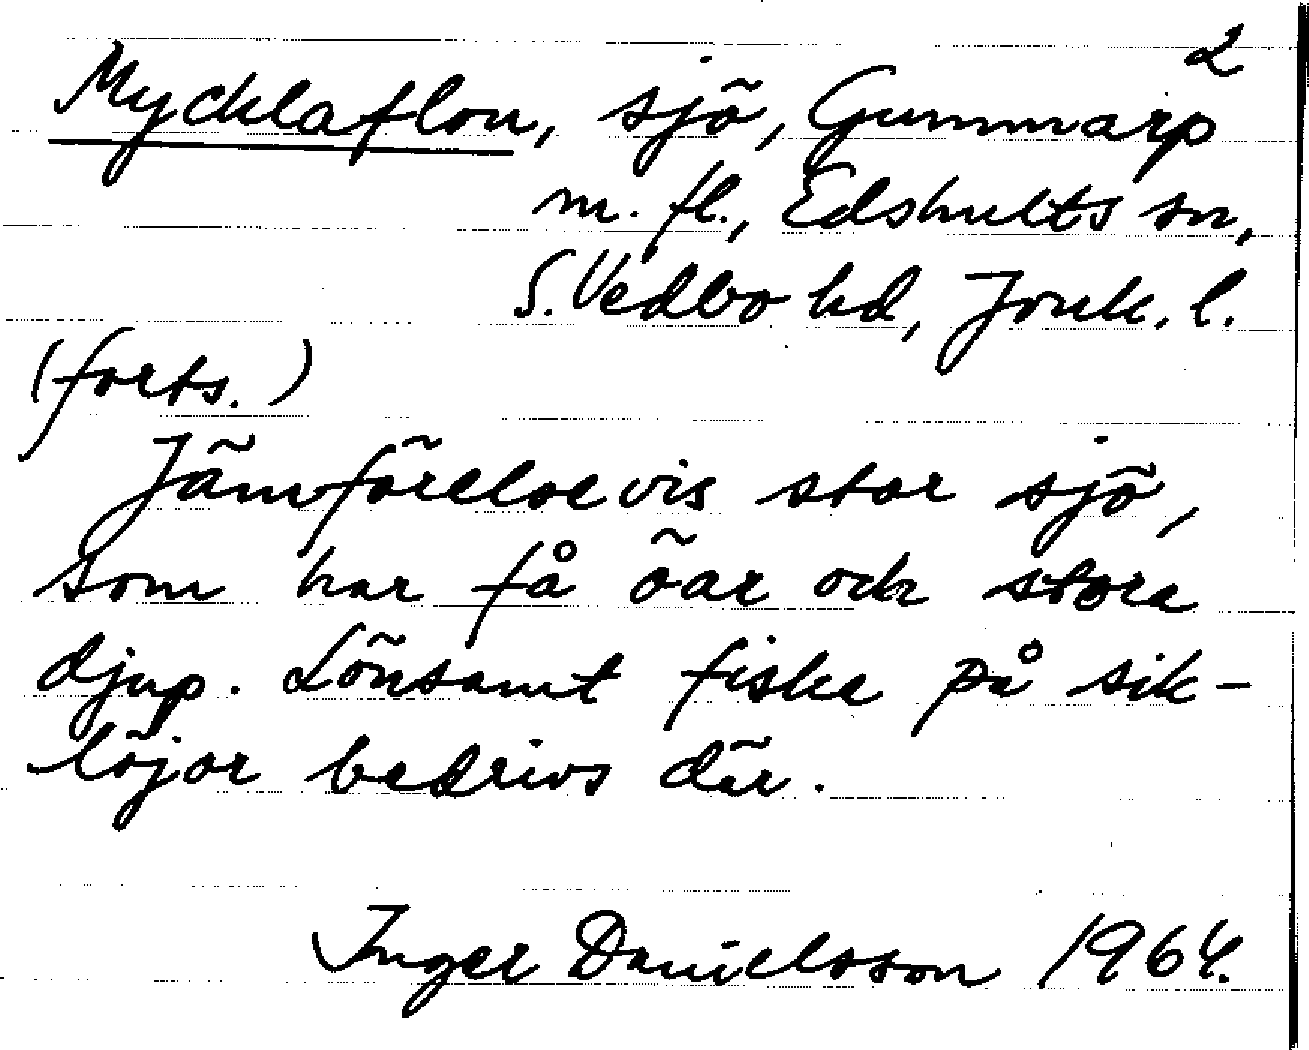 2
Mycklaflon, sjö, Gummarp
m. fl., Edshults sn,
S. Vedbo hd, Jönk. l.
(forts.)
Jämförelsevis stor sjö,
som har få öar och stora
djup. Lönsamt fiske på sik-
löjor bedrivs där.
Inger Danielsson 1964.